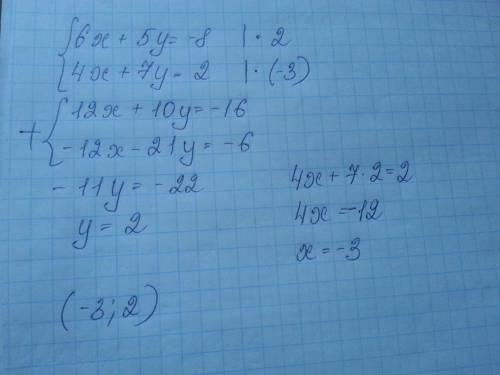 {6x + 5y = -8 | · 2
{4x + 7y = 2 | · (-3)
+ {12x + 10y = -16
{-12x - 21y = -6
- 11y = -22
y = 2
4x + 7 · 2 = 2
4x = -12
x = -3
(-3; 2)